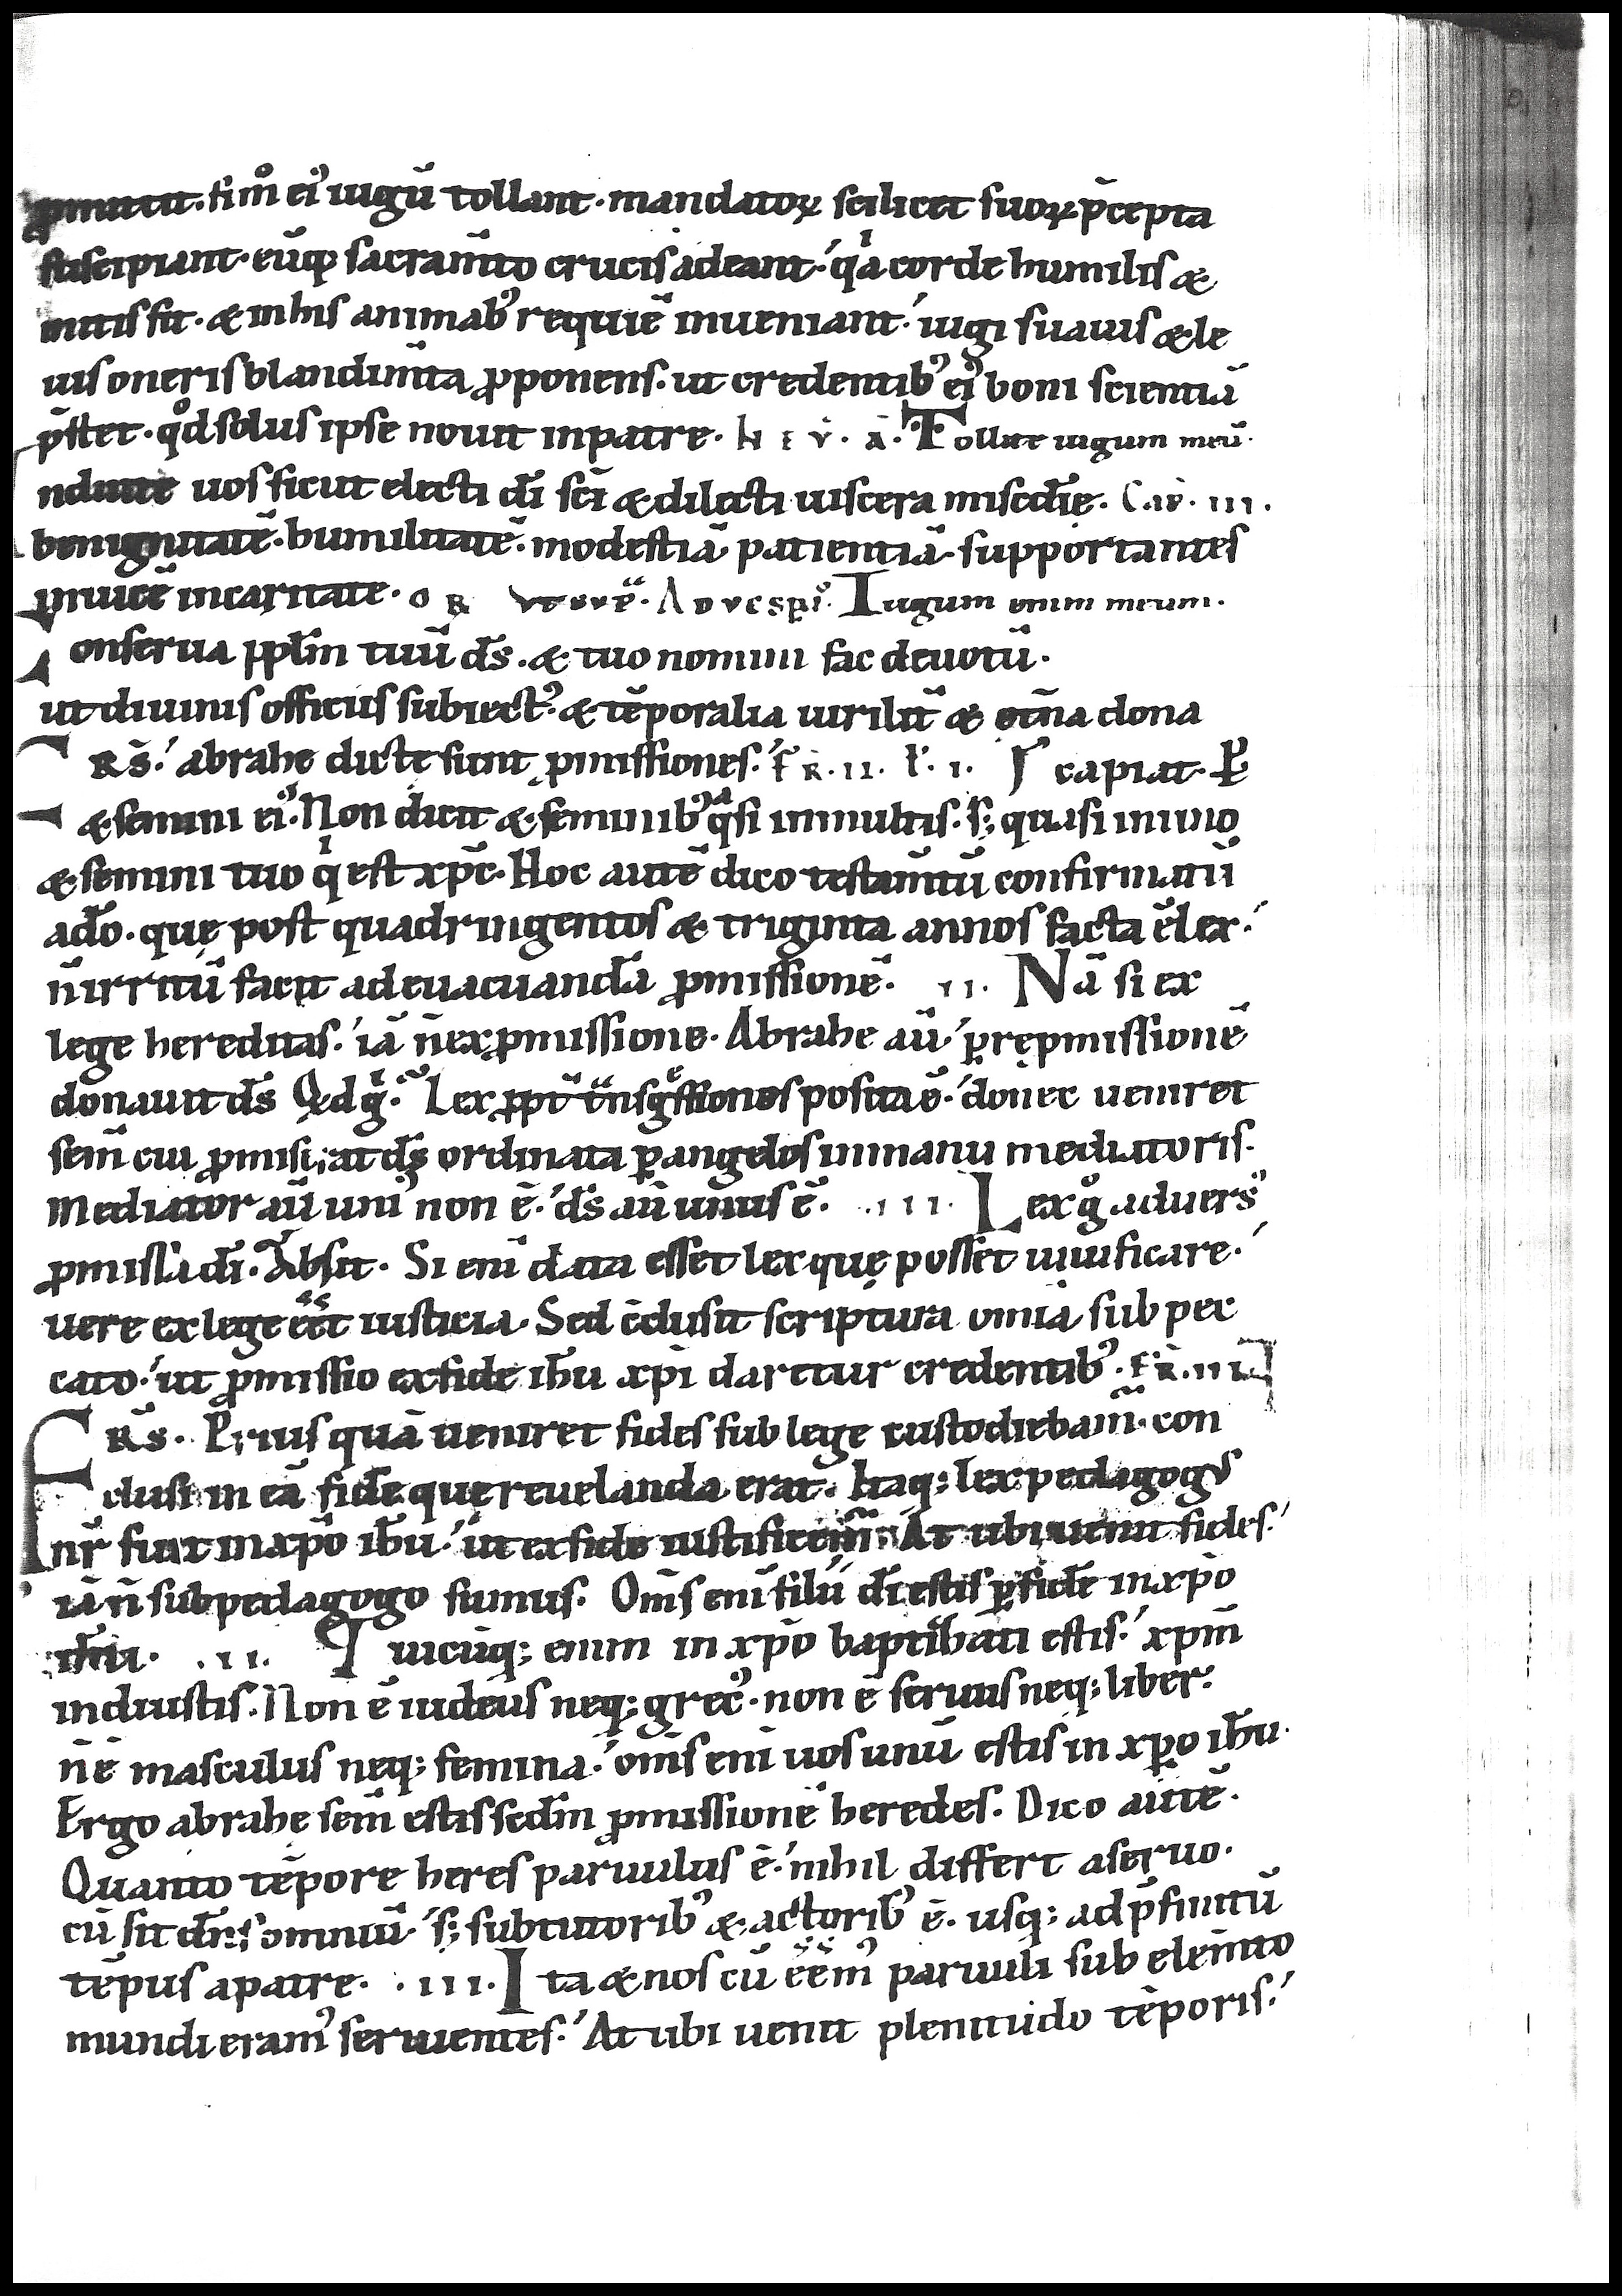 ꝓmittit. si mͦ eiꝰ iugū tollant. mandatoꝝ scilicet suoꝝ p̄cepta
suscipiant. eūq; sacram̄to crucis adeant. qͥa corde humilis &
mitis sit. & in his animabꝰ requiē inueniant. iugi suauis & le
uis oneris blandim̄ta ꝓponens. ut credentibꝰ eiꝰ boni scientiā
p̄stet. qͦd solus ipse nouit in patre. Tollite iugum meū.
nduite uos sicut electi dī scī & dilecti uiscera miscd̄ię. Cap. III.
benignitatē. humilitatē. modestiā patientiā supportantes
inuicē in caritate. OR Iugum enim meum.
onserua ppl̄m tuū dс̄. & tuo nomini fac deuotū.
ut diuinis officiis subiectꝰ. & tēporalia uirilit̄ & et̄na dona
RS̄. abrahe dictę sunt ꝓmissiones. FR. II. F. I. capiat. P̲
& semini eiꝰ. Non dicit & seminibꝰ qᵃsi in multis. s; quasi in uno
& semini tuo qͥ est xp̄c. Hoc autē dico testam̄tū confirmatū
a dō. quę post quadringentos & triginta annos facta ē lex.
n̄ irritū facit ad euacuandā ꝓmissionē. II. Nā si ex
lege hereditas. iā n̄ ex ꝓmissione. Abrahe aū p̱ rep̱missionē
donauit dс̄ Qͥd gͥ. Lex ꝓpt̄ tͣnsgͤssiones posita ē. donec ueniret
sem̄ cui ꝓmiserat dс̄ ordinata p̱ angelos in manu mediatoris.
Mediator aū uniꝰ non ē. dс̄ aū unus ē. .III. Lex gͦ aduersꝰ
ꝓmissa dī. Absit. Si enī data esset lex quę posset uiuificare.
uere ex lege eēt iusticia. Sed c̄clusit scriptura omīa sub pec
cato. ut ꝓmissio ex fide ih̄u xp̄i daretur credentibꝰ. FR. III
RS̄. Prius quā ueniret fides sub lege custodiebam̄. con
clusi in eā fidē quę reuelanda erat. Itaq; lex pedagogꝰ
nr̄ fuit in xp̄o ih̄u. ut ex fide iustificem̄. At ubi uenit fides.
iā n̄ sub pedagogo sumus. Om̄s enī filii dī estis p̱ fidē in xp̄o
ih̄u. .II. Quicūq; enim in xp̄o baptizati estis. xpm̄
induistis. Non ē iudeus neq; grecꝰ. non ē seruus neq; liber.
n̄ ē masculus neq; femina. om̄s enī uos unū estis in xp̄o ih̄u.
Ergo abrahe sem̄ estis sed̄m ꝓmissionē heredes. Dico autē.
Quanto tēpore heres paruulus ē. nihil differt a seruo.
cū sit dn̄s omniū. s; sub tutoribꝰ & actoribꝰ ē. usq; ad p̄finitū
tēpus a patre. .III. Ita & nos cū eēmꝰ paruuli sub elem̄to
mundi eramꝰ seruientes. At ubi uenit plenitudo tēporis.